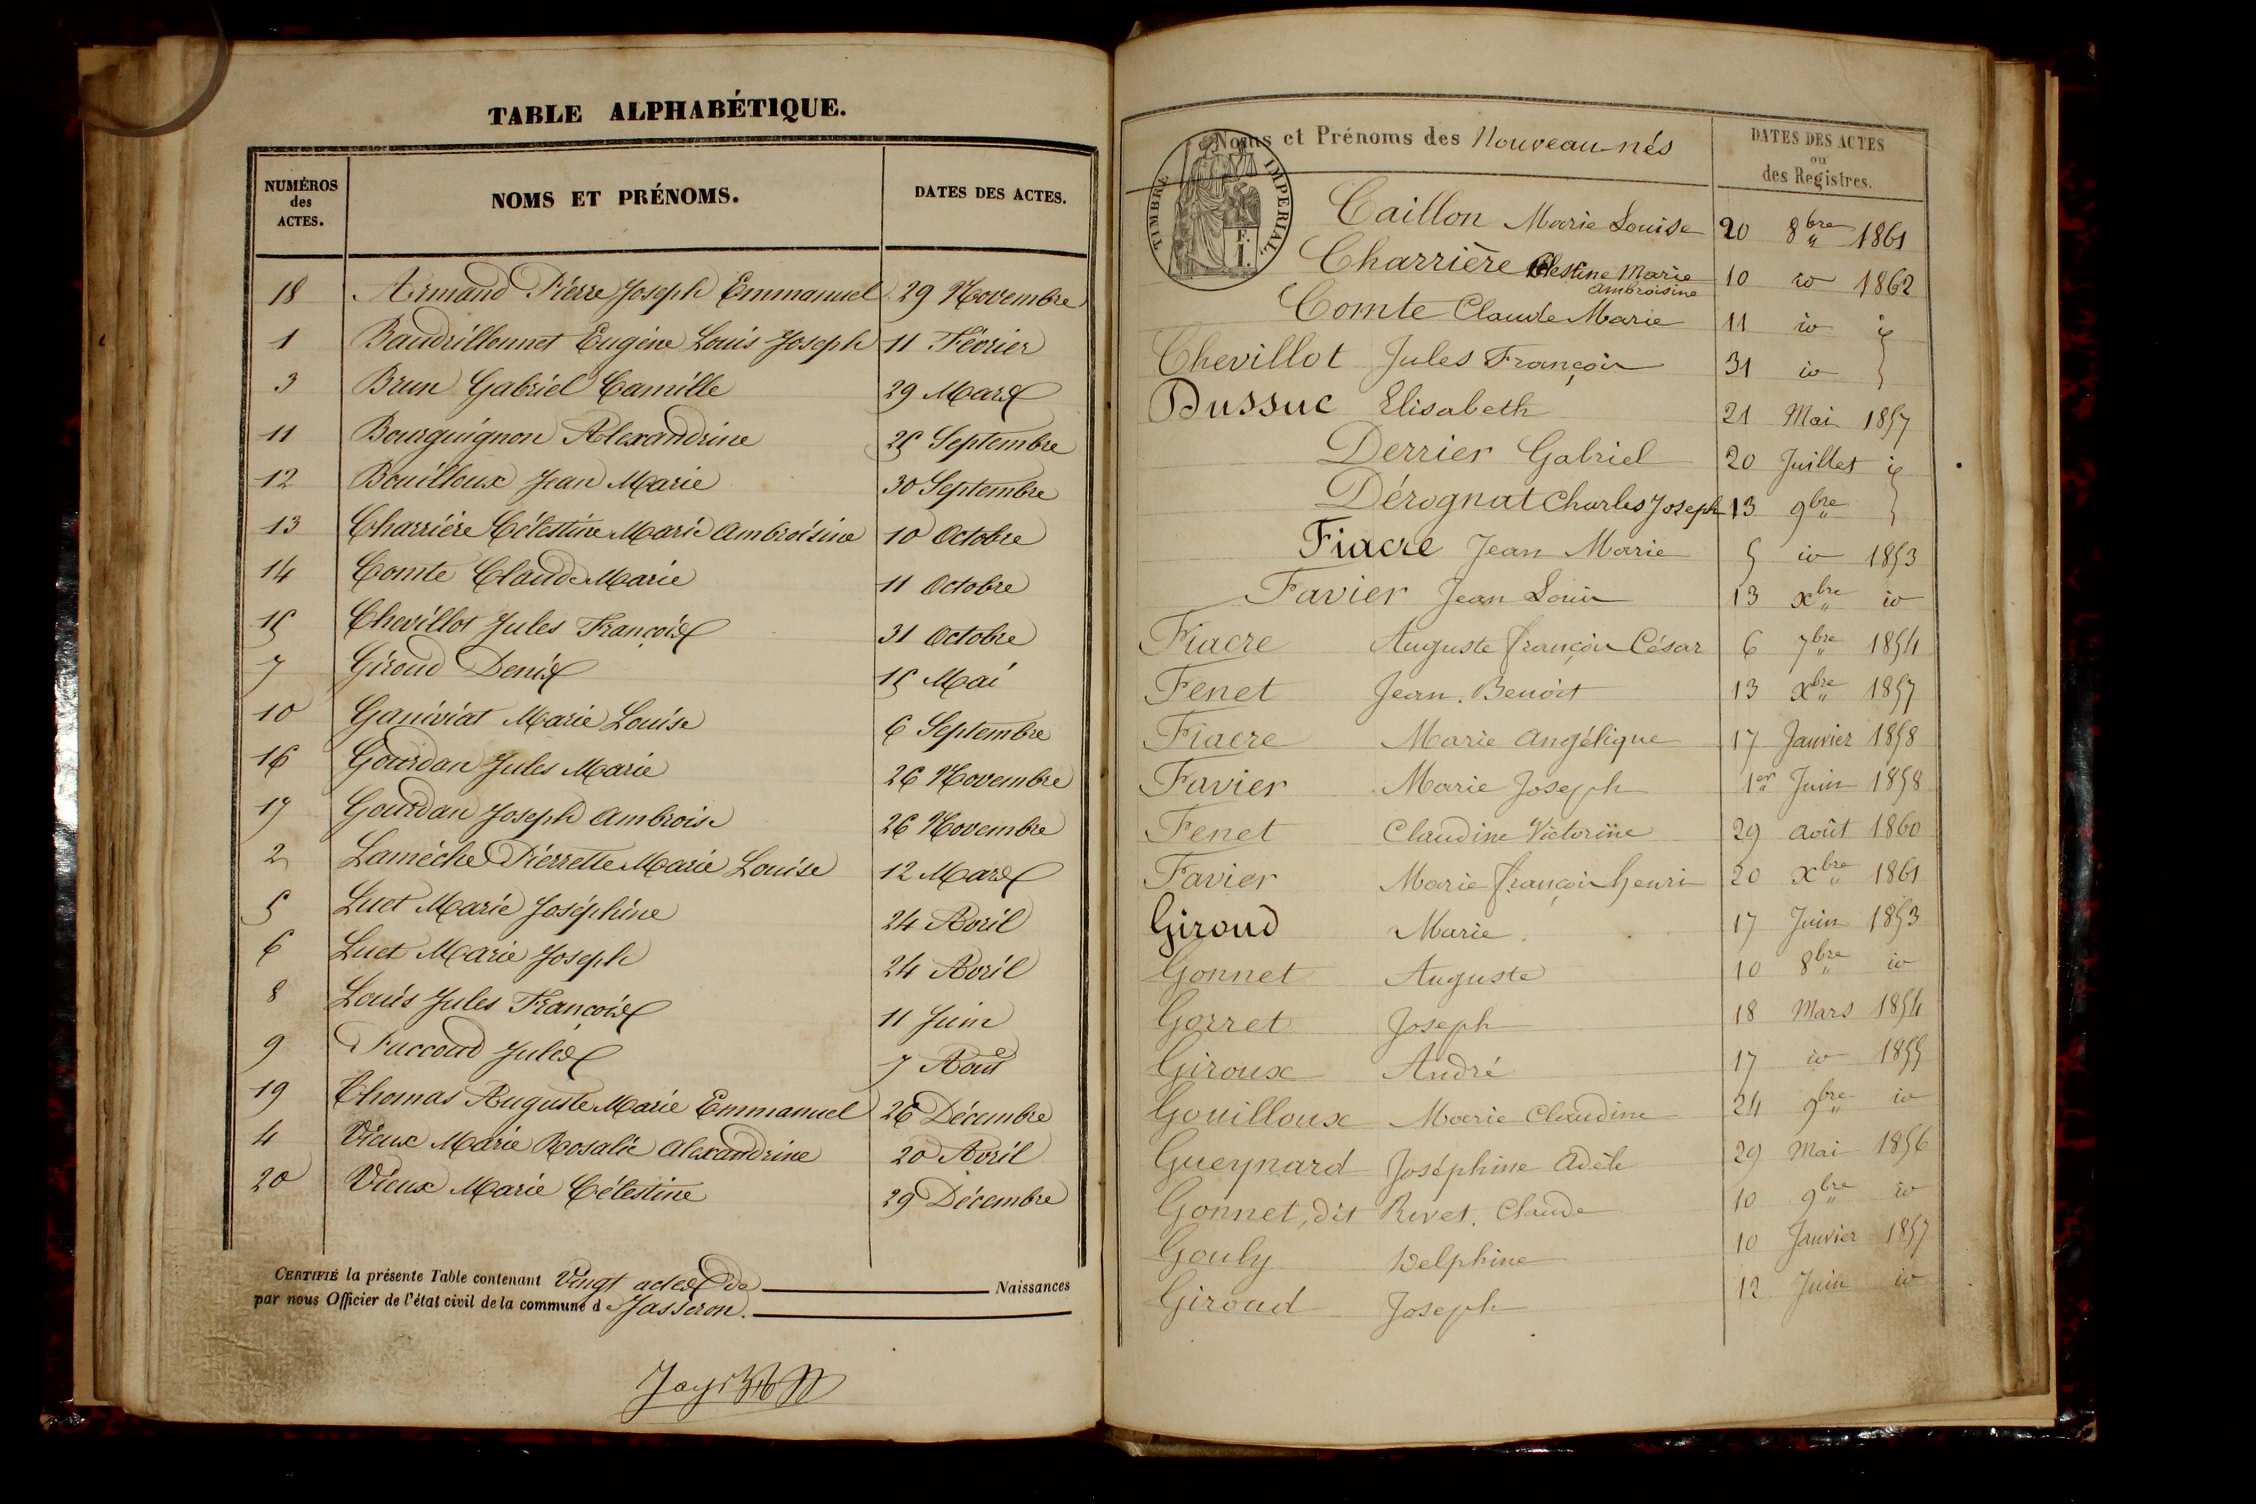 TABLE ALPHABÉTIQUE.
NUMÉROS des ACTES.
NOMS ET PRÉNOMS.
DATES DES ACTES.
18 Armand Pierre Joseph Emmanuel 29 Novembre
1 Baudrillonnet Eugène Louis Joseph 11 Février
3 Brun Gabriel Camille 29 Mars
11 Bourguignon Alexandrine 25 Septembre
12 Bouilloux Jean Marie 30 Septembre
13 Charrière Célestine Marie Ambroisine 10 Octobre
14 Comte Claude Marie 11 Octobre
15 Chevillot Jules François 31 Octobre
7 Giroud Denis 15 Mai
10 Ganiviat Marie Louise 6 Septembre
16 Gourdan Jules Marie 26 Novembre
17 Gourdan Joseph Ambroise 26 Novembre
2 Lamèche Pierrette Marie Louise 12 Mars
5 Luet Marie Joséphine 24 Avril
6 Luet Marie Joseph 24 Avril
8 Louis Jules François 11 Juin
9 Puccoud Jules 7 Août
19 Thomas Auguste Marie Emmanuel 26 Décembre
4 Vieux Marie Rosalie Alexandrine 20 Avril
20 Vieux Marie Célestine 29 Décembre
CERTIFIÉ la présente Table contenant Vingt actes de Naissances
par nous Officier de l'état civil de la commune d Jasseron.
Noms et Prénoms des Nouveau-nés
DATES DES ACTES
ou
des Registres.
TIMBRE IMPERIAL.
F.
1.
Caillon Marie Louise 20 8bre 1861
Charrière Célestine Marie 10 io 1862
Ambroisine
Comte Claude Marie 11 io io
Chevillot Jules François 31 io
Dussuc Elisabeth 21 Mai 1857
Derrier Gabriel 20 Juillet io
Dérognat Charles Joseph 13 9bre
Fiacre Jean Marie 5 io 1853
Favier Jean Louis 13 xbre io
Fiacre Auguste françois César 6 7bre 1854
Fenet Jean Benoit 13 xbre 1857
Fiacre Marie Angélique 17 Janvier 1858
Favier Marie Joseph 1er Juin 1858
Fenet Claudine Victorine 29 août 1860
Favier Marie françois henri 20 xbre 1861
Giroud Marie 17 Juin 1853
Gonnet Auguste 10 8bre io
Gorret Joseph 18 Mars 1854
Giroux André 17 io 1855
Gouilloux Marie Claudine 24 9bre io
Gueynard Joséphine Adèle 29 Mai 1856
Gonnet, dit Rivet, Claude 10 9bre io
Gouly Delphine 10 Janvier 1857
Giroud Joseph 12 Juin io